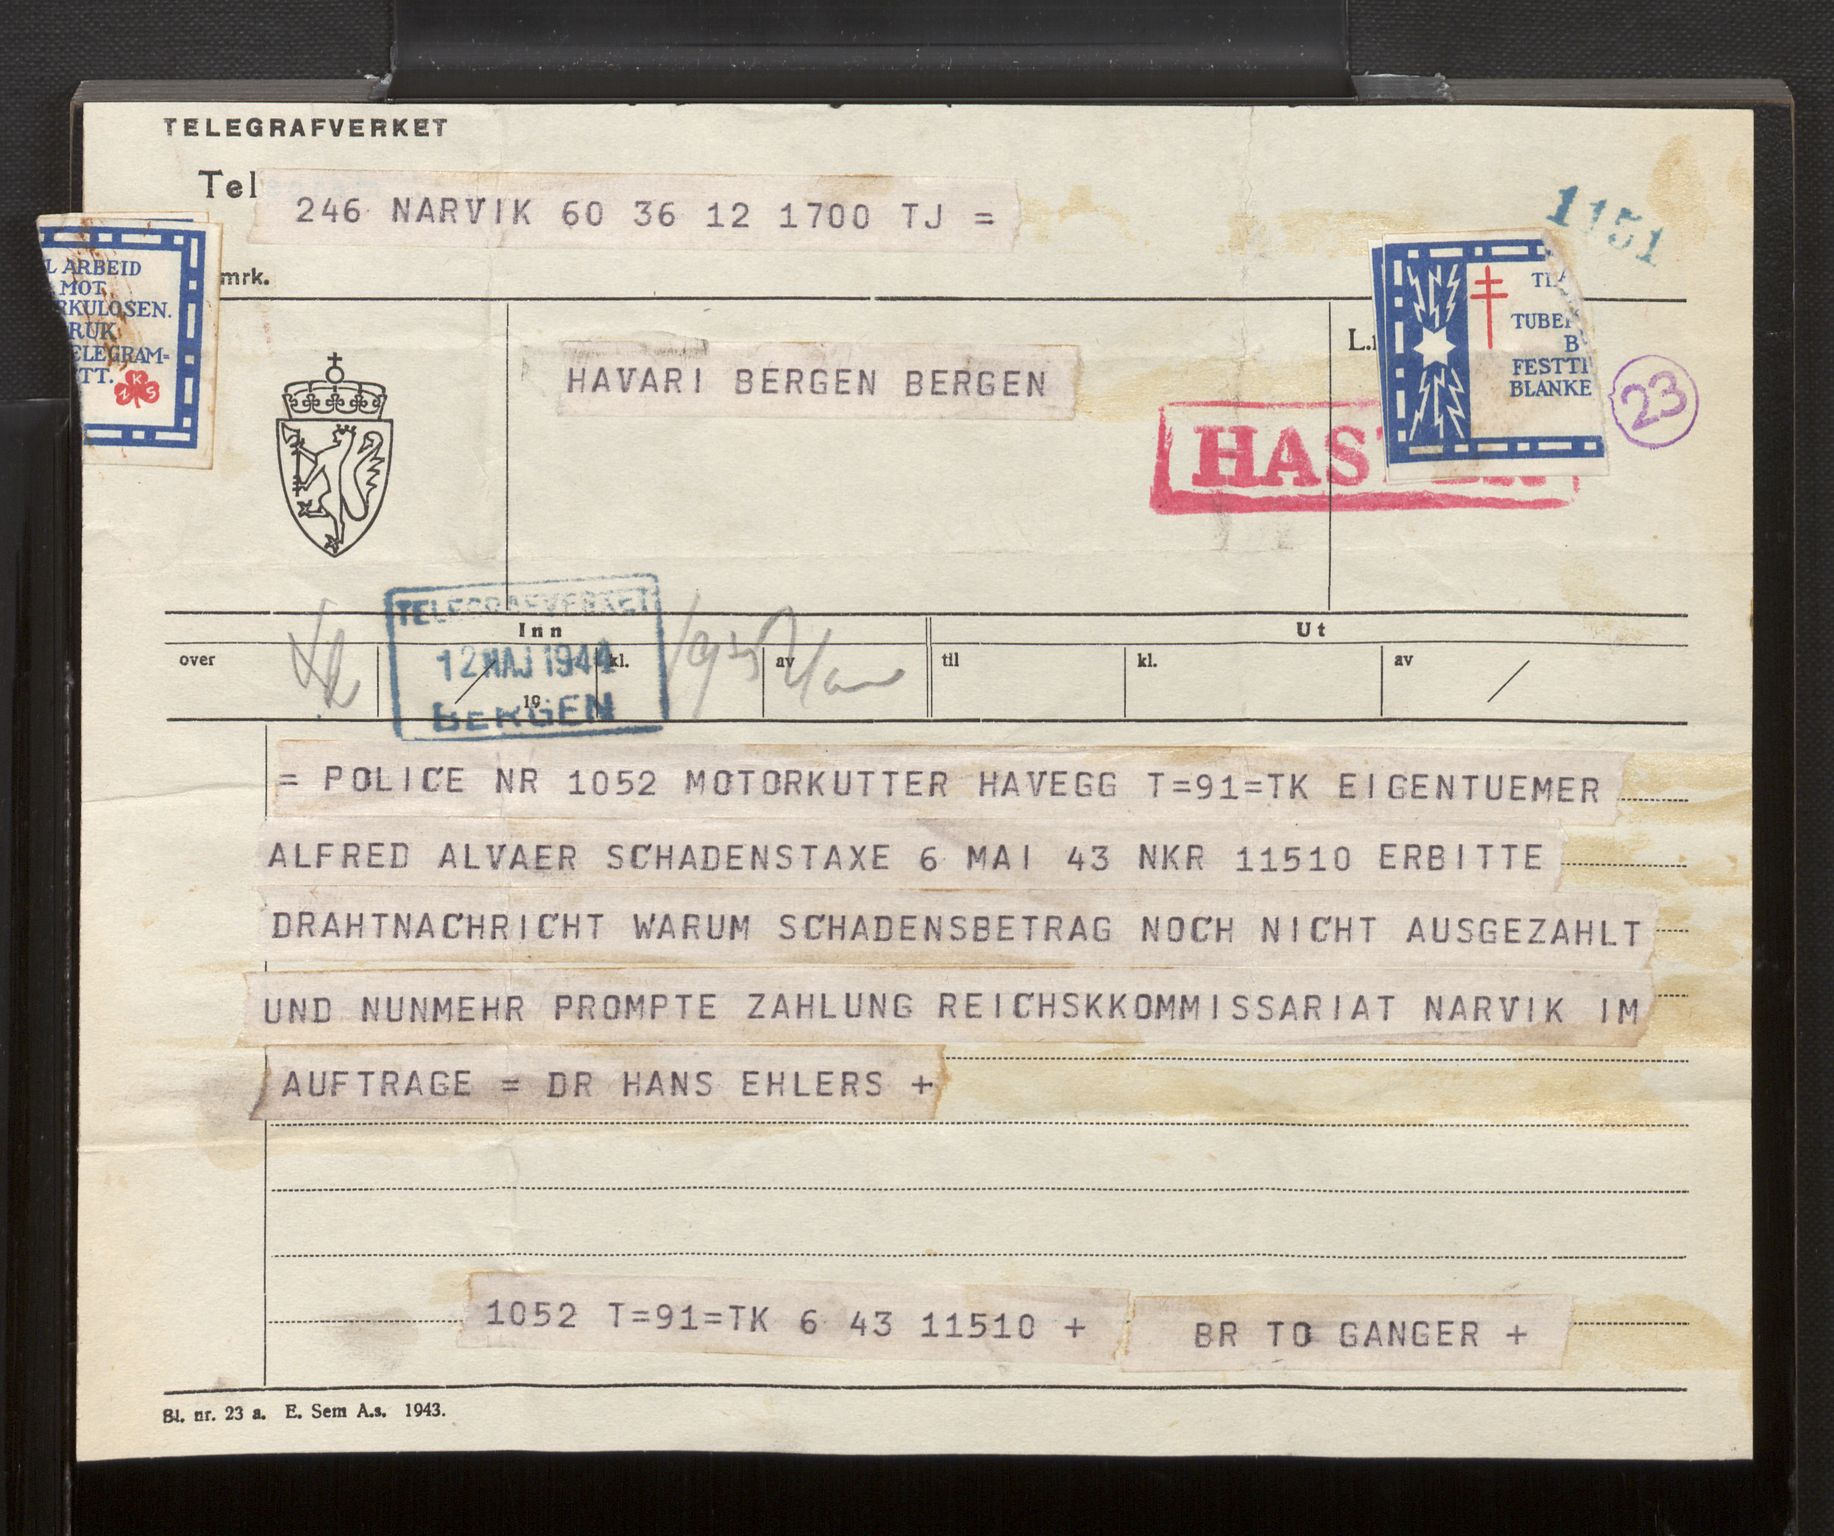 TELEGRAFVERKET
1151
Tel
246 NARVIK 60 36 12 1700 TJ =
mrk.
L ARBEID
MOT
RKULOSEN.
RUK
ELEGRAM-
TT.
HAVARI BERGEN BERGEN
TUBER
B
FESTTI
BLANKE
23
HAS
TELEGRAFVERKET
12 MAJ 1944
BERGEN
Inn
Ut
over
19
kl.
av
til
kl.
av
= POLICE NR 1052 MOTORKUTTER HAVEGG T=91=TK EIGENTUEMER
ALFRED ALVAER SCHADENSTAXE 6 MAI 43 NKR 11510 ERBITTE
DRAHTNACHRICHT WARUM SCHADENSBETRAG NOCH NICHT AUSGEZAHLT
UND NUNMEHR PROMPTE ZAHLUNG REICHSKKOMMISSARIAT NARVIK IM
AUFTRAGE = DR HANS EHLERS +
1052 T=91=TK 6 43 11510 + BR TO GANGER +
Bl. nr. 23 a. E. Sem A.s. 1943.